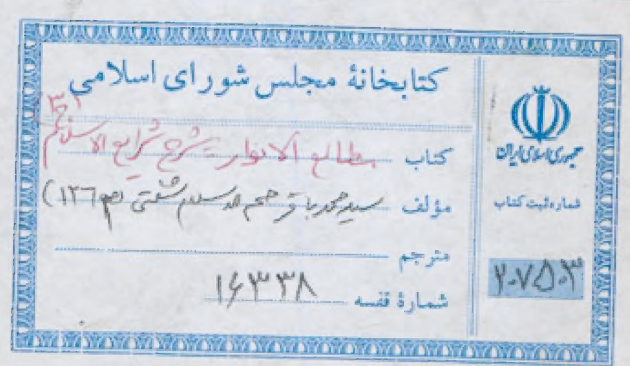 کتابخانهٔ مجلس شورای اسلامی
کتاب مطالع الانوار شرح شرایع الاسلام
مؤلف سید محمد باقر حجة الاسلام شفتی
مترجم
شمارهٔ قفسه ۱۶۳۳۸
جمهوری اسلامی ایران
شماره ثبت کتاب
۲۰۷۵۰۳